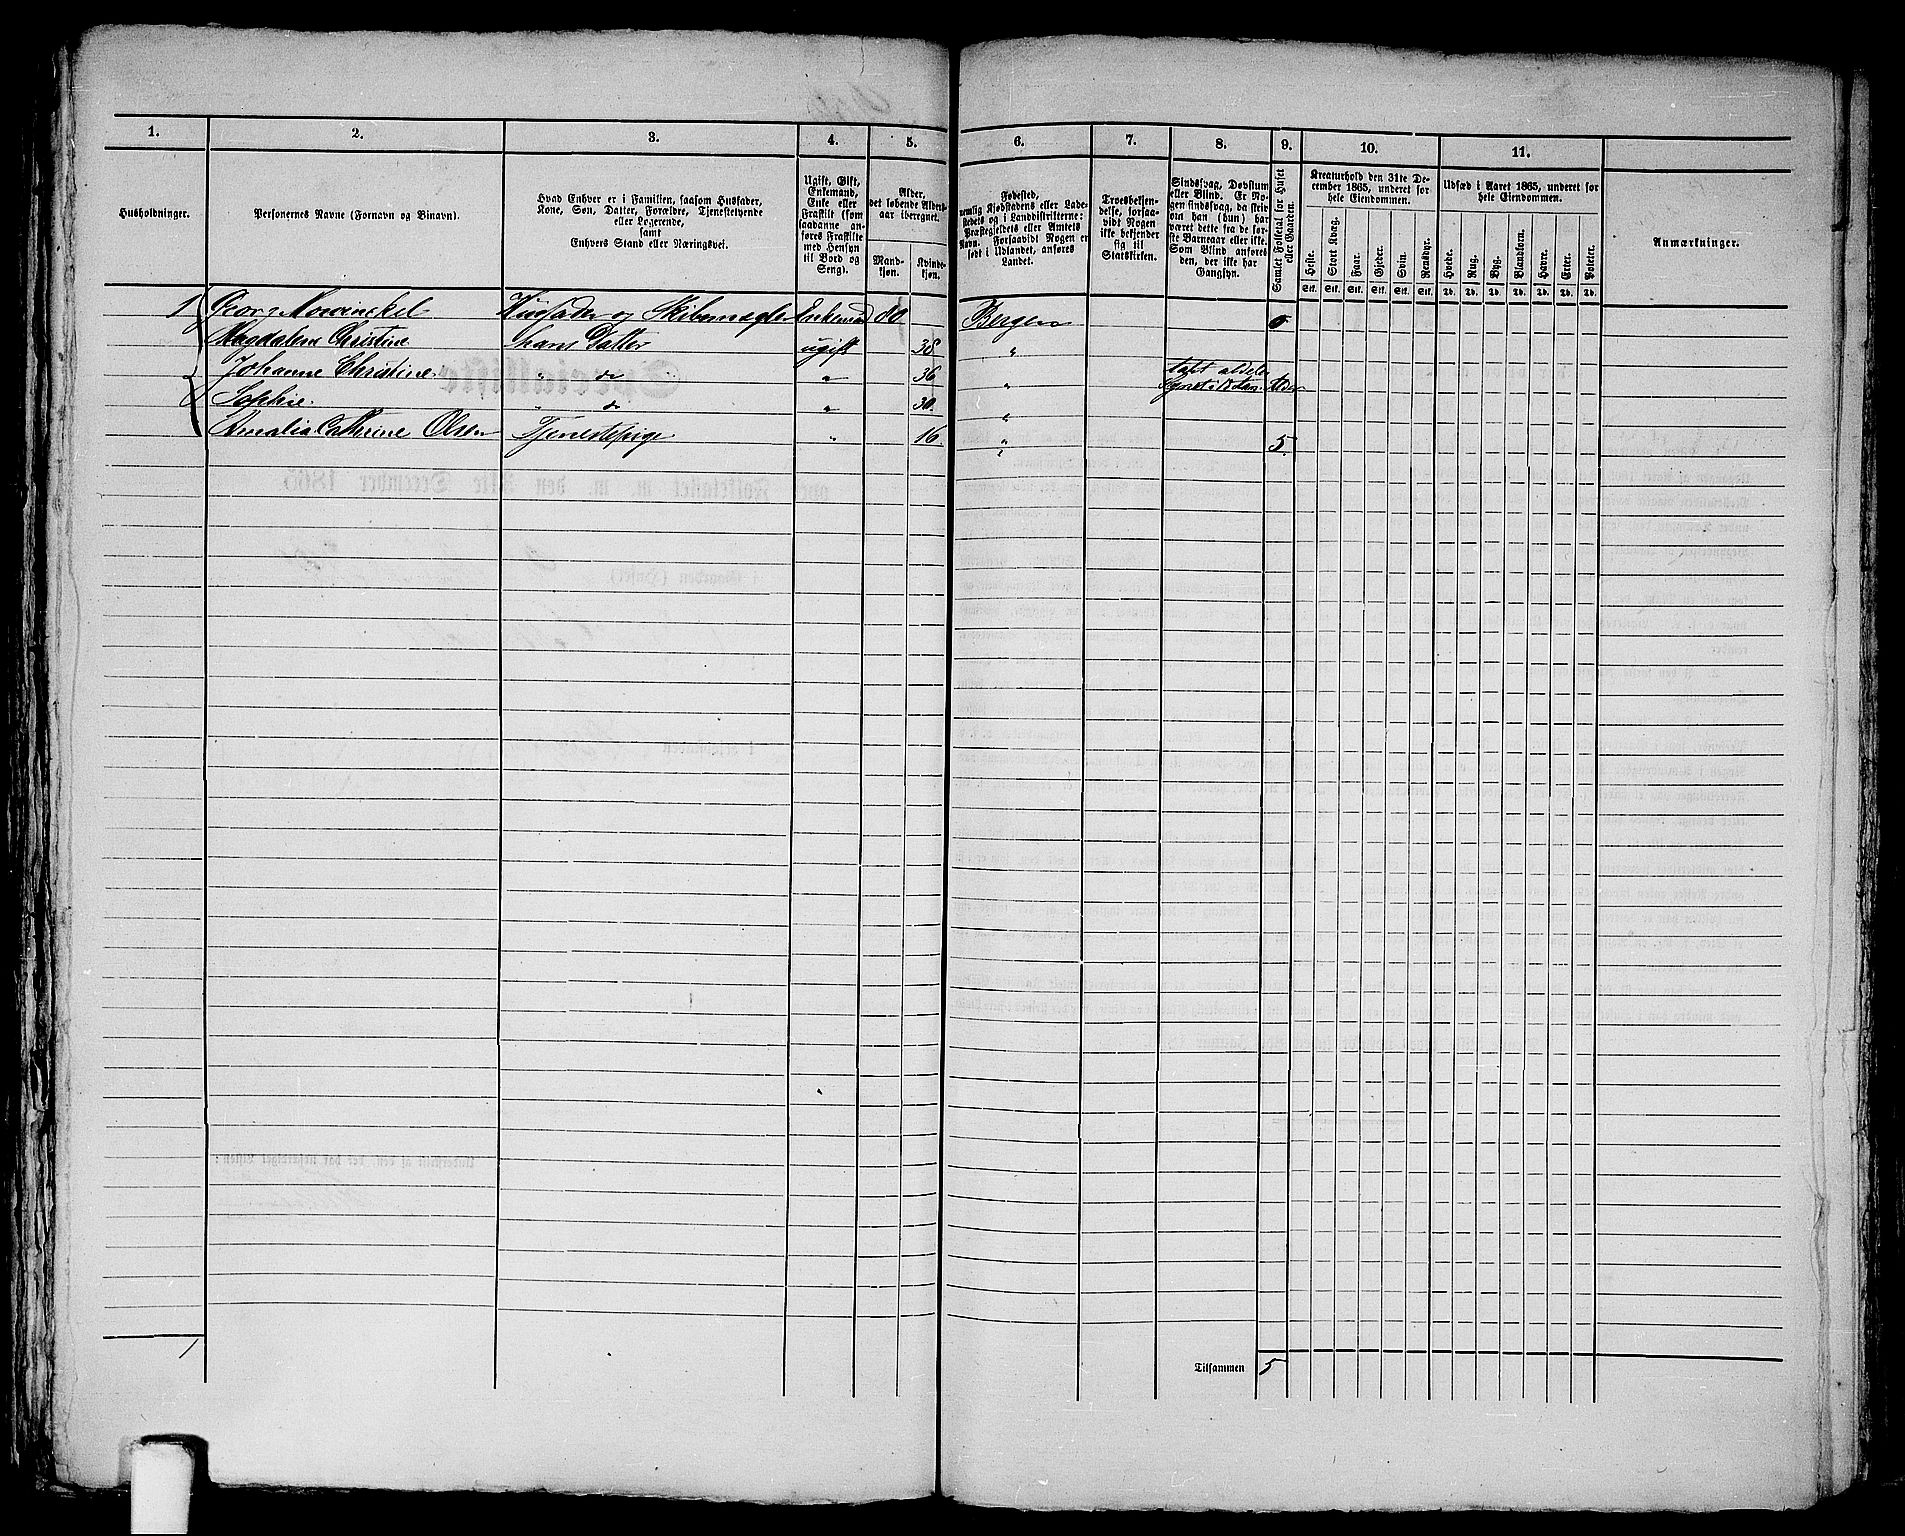 1. 2. 3. 4. 5. 6. 7. 8. 9. 10. 11.
Husholdninger.
Personernes Navne (Fornavn og Binavn).
Hvad Enhver er i Familien, saasom Husfader,
Kone, Søn, Datter, Forældre, Tjenestetyende
eller Logerende,
samt
Enhvers Stand eller Næringsvei.
Ugift, Gift,
Enkemand,
Enke eller
Fraskilt (som
saadanne an-
føres Fraskilte
med Hensyn
til Bord og
Seng).
Alder,
det løbende Alders-
aar iberegnet.
Mand-
kjøn.
Kvinde-
kjøn.
Fødested,
nemlig Kjøbstadens eller Lade-
stedets og i Landdistrikterne:
Præstegjeldets eller Amtets
Navn. Forsaavidt Nogen er
født i Udlandet, anføres
Landet.
Troesbekjen-
delse, forsaa-
vidt Nogen
ikke bekjender
sig til
Statskirken.
Sindssvag, Døvstum
eller Blind. Er No-
gen sindssvag, da skriv
om han (hun) har
været dette fra de før-
ste Barneaar eller ikke.
Som Blind anføres
den, der ikke har
Gangsyn.
Samlet Folketal for Huset
eller Gaarden.
Kreaturhold den 31te De-
cember 1865, underet for
hele Eiendommen.
Heste. Stort Kvæg. Faar. Gjeder. Svin. Rensdyr.
Stk. Stk. Stk. Stk. Stk. Stk.
Udsæd i Aaret 1865, underet for
hele Eiendommen.
Hvede. Rug. Byg. Blandkorn. Havre. Erter. Poteter.
Td. Td. Td. Td. Td. Td. Td.
Anmærkninger.
1 Georg Mowinckel Husfader og Skibsmægler Enkemand 80 Bergen
Magdalene Christine hans Datter ugift 38 "
Johanne Christine " do " 36 "
Sophie. " do " 30 "
Amalia Catherine Olsen Tjenestepige " 16 " 5
1
Tilsammen 5